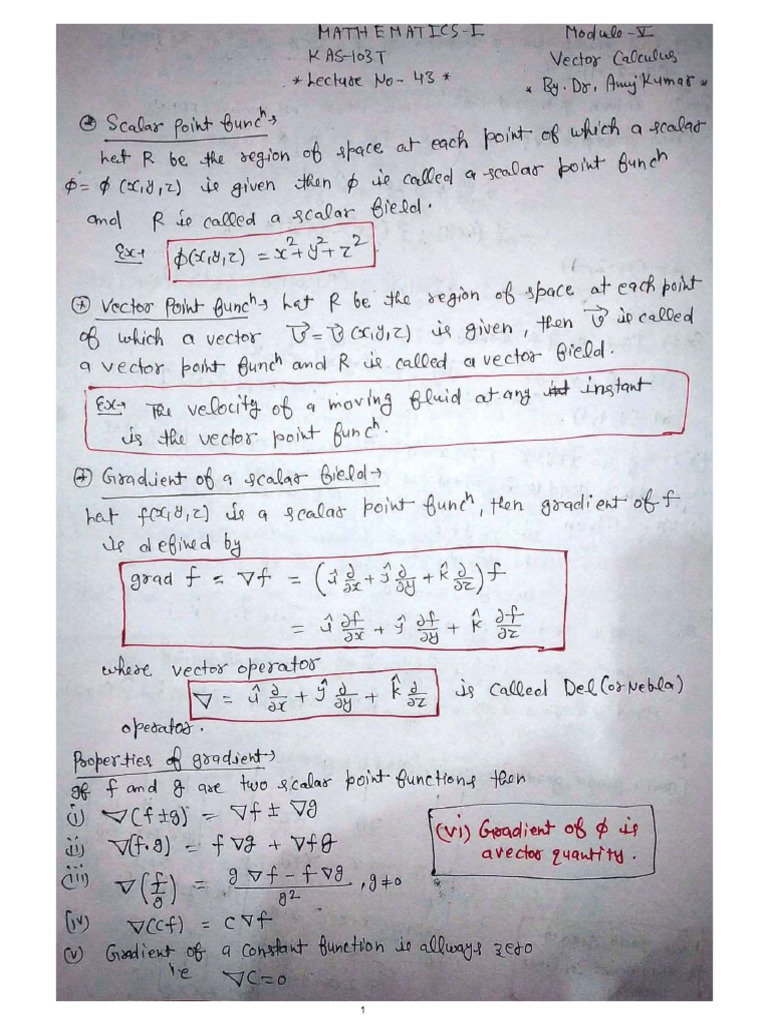 MATHEMATICS-I Module-V
KAS-103T Vector Calculus
* Lecture No- 43 * * By. Dr. Anuj Kumar *
⊛ Scalar Point funcⁿ→
Let R be the region of space at each point of which a scalar
ϕ = ϕ(x,y,z) is given then ϕ is called a scalar point funcⁿ
and R is called a scalar field.
Ex→ ϕ(x,y,z) = x²+y²+z²
⊛ Vector Point funcⁿ→ Let R be the region of space at each point
of which a vector v⃗ = v⃗(x,y,z) is given, then v⃗ is called
a vector point funcⁿ and R is called a vector field.
Ex→ The velocity of a moving fluid at any instant
is the vector point funcⁿ.
⊛ Gradient of a scalar field→
Let f(x,y,z) is a scalar point funcⁿ, then gradient of f
is defined by
grad f = ∇f = (î ∂/∂x + ĵ ∂/∂y + k̂ ∂/∂z) f
= î ∂f/∂x + ĵ ∂f/∂y + k̂ ∂f/∂z
where vector operator
∇ = î ∂/∂x + ĵ ∂/∂y + k̂ ∂/∂z is called Del (or Nebla)
operator.
Properties of gradient→
If f and g are two scalar point functions then
(i) ∇(f±g) = ∇f ± ∇g
(ii) ∇(f·g) = f∇g + ∇f g
(iii) ∇(f/g) = (g∇f − f∇g)/g² , g≠0
(iv) ∇(cf) = c∇f
(v) Gradient of a constant function is allways zero
ie ∇C=0
(vi) Gradient of ϕ is
a vector quantity.
1